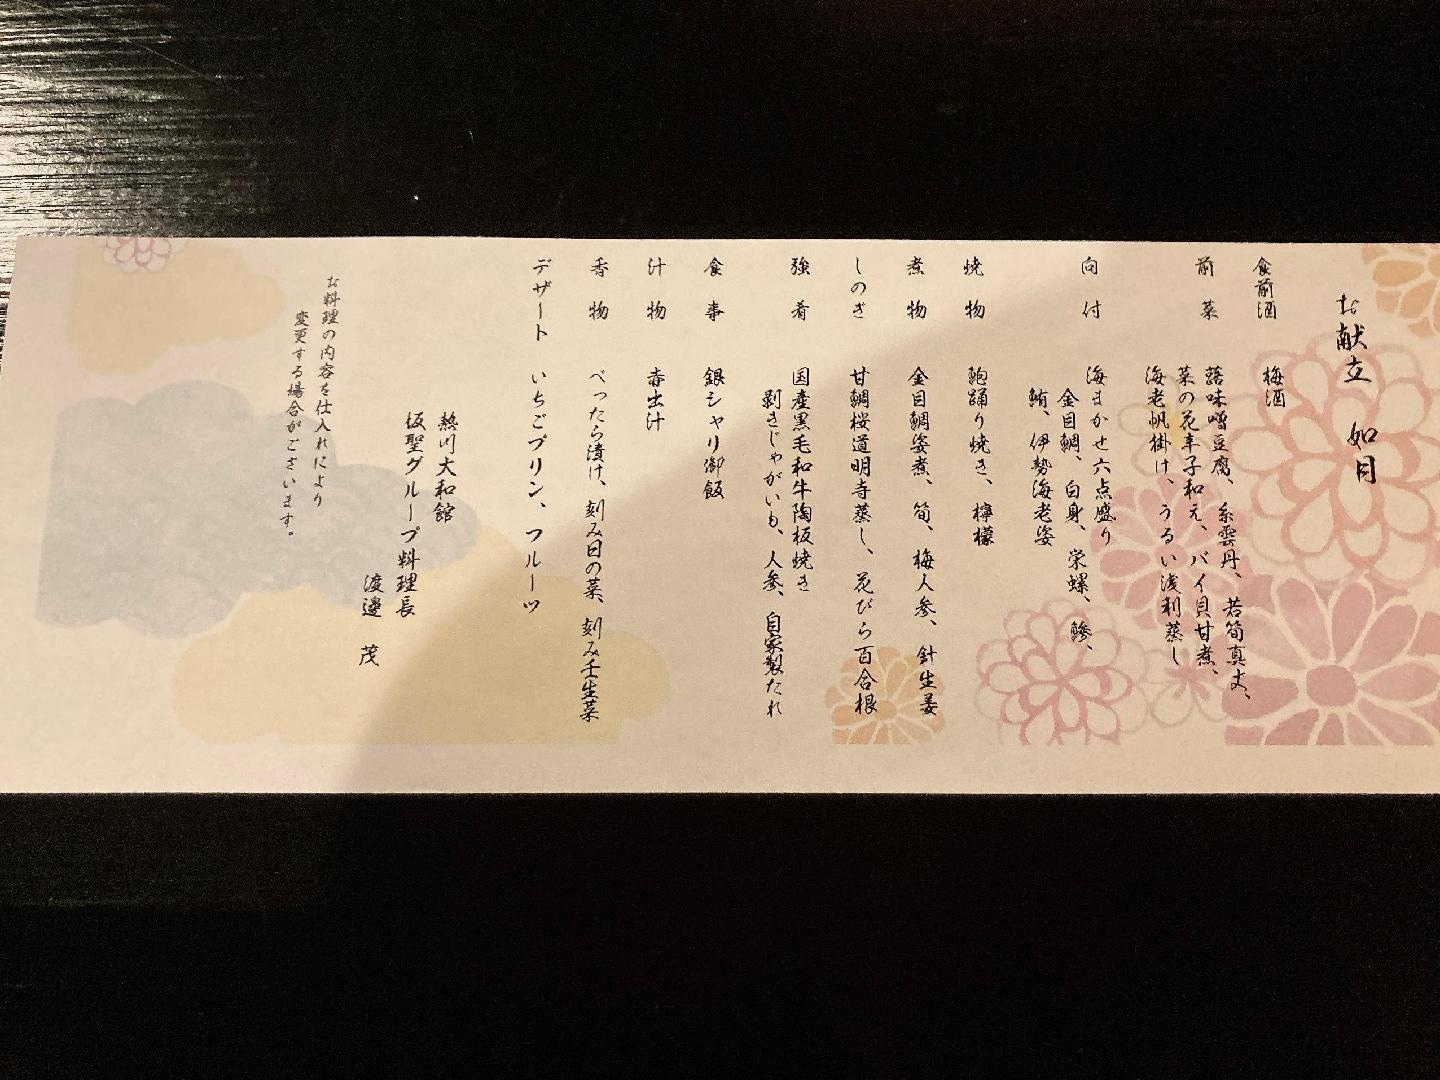 お献立 如月
食前酒 梅酒
前菜 蕗味噌豆腐、糸雲丹、若筍真丈、
菜の花辛子和え、バイ貝甘煮、
海老帆掛け、うるい浅利蒸し
向付 海まかせ六点盛り
金目鯛、白身、栄螺、鯵、
鮪、伊勢海老姿
焼物 鮑踊り焼き、檸檬
煮物 金目鯛姿煮、筍、梅人参、針生姜
しのぎ 甘鯛桜道明寺蒸し、花びら百合根
強肴 国産黒毛和牛陶板焼き
剥きじゃがいも、人参、自家製たれ
食事 銀シャリ御飯
汁物 赤出汁
香物 べったら漬け、刻み日の菜、刻み壬生菜
デザート いちごプリン、フルーツ
熱川大和館
坂聖グループ料理長
渡邉 茂
お料理の内容を仕入れにより
変更する場合がございます。